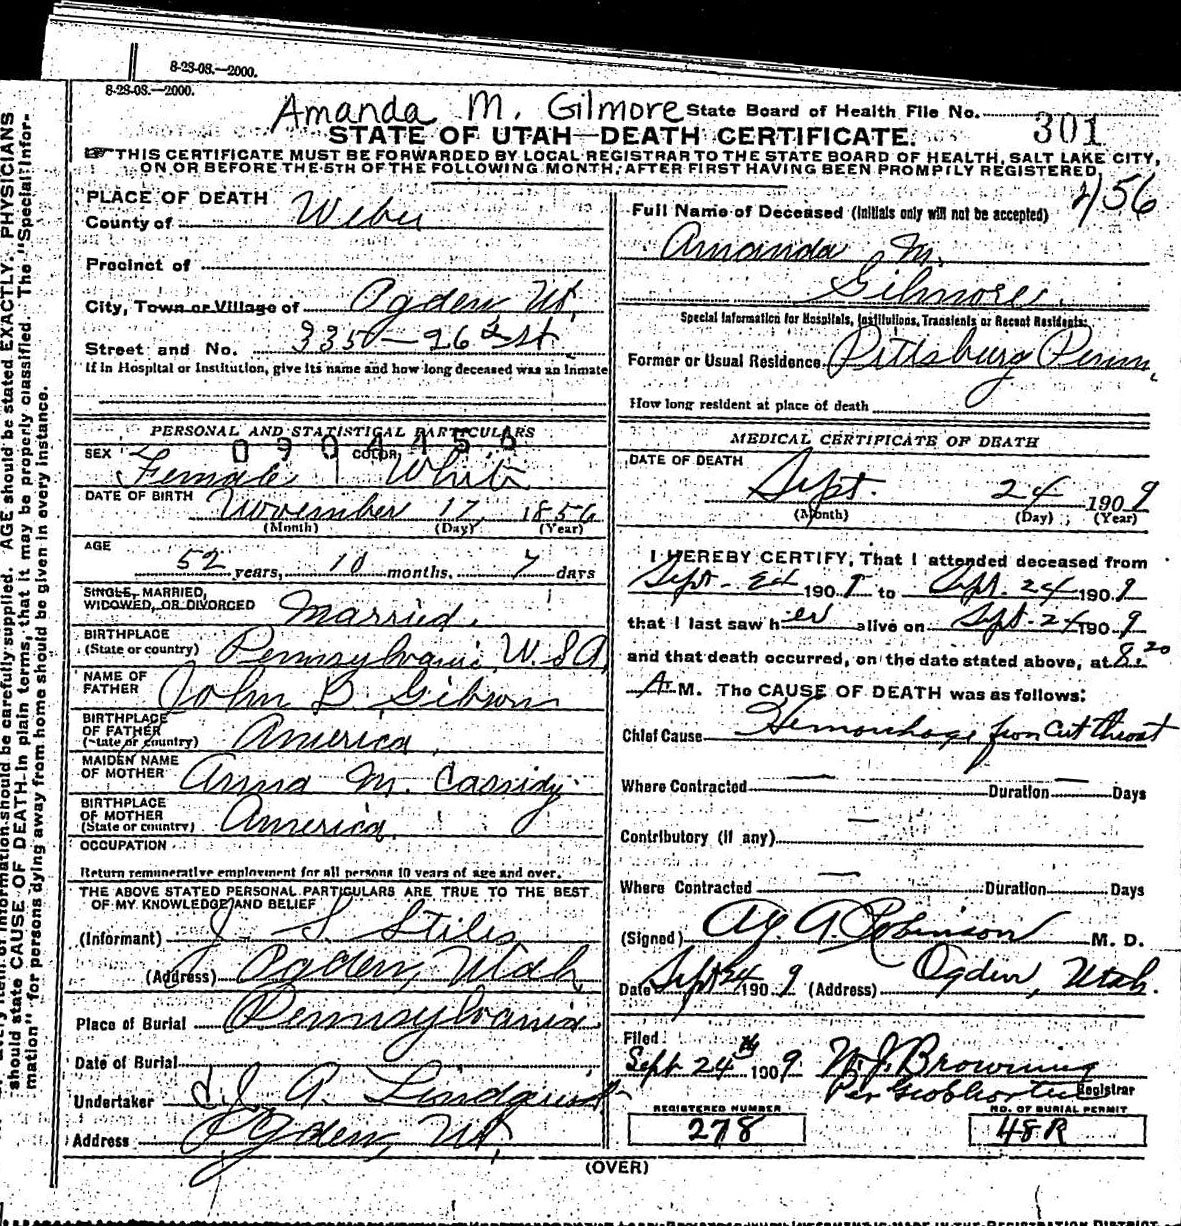 8-28-08.—2000.
8-28-08.—2000.
Amanda M. Gilmore State Board of Health File No. 301
STATE OF UTAH—DEATH CERTIFICATE.
THIS CERTIFICATE MUST BE FORWARDED BY LOCAL REGISTRAR TO THE STATE BOARD OF HEALTH, SALT LAKE CITY,
ON OR BEFORE THE 5TH OF THE FOLLOWING MONTH, AFTER FIRST HAVING BEEN PROMPTLY REGISTERED.
456
PLACE OF DEATH
County of Weber
Precinct of
City, Town or Village of Ogden Ut.
Street and No. 335 — 26 St.
If in Hospital or Institution, give its name and how long deceased was an Inmate
PERSONAL AND STATISTICAL PARTICULARS
0904456
SEX Female COLOR White
DATE OF BIRTH November 17 1856
(Month) (Day) (Year)
AGE
52 years, 10 months, 7 days
SINGLE, MARRIED,
WIDOWED, OR DIVORCED Married.
BIRTHPLACE
(State or country) Pennsylvania U.S.A.
NAME OF
FATHER John B. Gibson
BIRTHPLACE
OF FATHER
(State or country) America
MAIDEN NAME
OF MOTHER Anna M. Cassidy
BIRTHPLACE
OF MOTHER
(State or country) America.
OCCUPATION
Return remunerative employment for all persons 10 years of age and over.
THE ABOVE STATED PERSONAL PARTICULARS ARE TRUE TO THE BEST
OF MY KNOWLEDGE AND BELIEF
(Informant) J. S. Stiles
(Address) Ogden, Utah
Place of Burial Pennsylvania
Date of Burial
Undertaker A. Lindquist
Address Ogden, Ut.
Full Name of Deceased (Initials only will not be accepted)
Amanda M.
Gilmore.
Special Information for Hospitals, Institutions, Transients or Recent Residents:
Former or Usual Residence Pittsburg Penn.
How long resident at place of death
MEDICAL CERTIFICATE OF DEATH
DATE OF DEATH
Sept. 24 1909
(Month) (Day) (Year)
I HEREBY CERTIFY, That I attended deceased from
Sept. 190 to Sept. 24 1909
that I last saw her alive on Sept. 24 1909
and that death occurred, on the date stated above, at 8:20
A M. The CAUSE OF DEATH was as follows:
Chief Cause Hemorrhage from cut throat
Where Contracted — Duration — Days
Contributory (if any) —
Where Contracted — Duration Days
(Signed) A. Robinson M. D.
Date Sept 24 1909 (Address) Ogden, Utah.
Filed
Sept 24th 1909 W. J. Browning
Per Registrar
REGISTERED NUMBER
278
NO. OF BURIAL PERMIT
48R
(OVER)
AGE should be stated EXACTLY. PHYSICIANS
should state CAUSE OF DEATH in plain terms, that it may be properly classified. The "Special Infor-
mation" for persons dying away from home should be given in every instance.